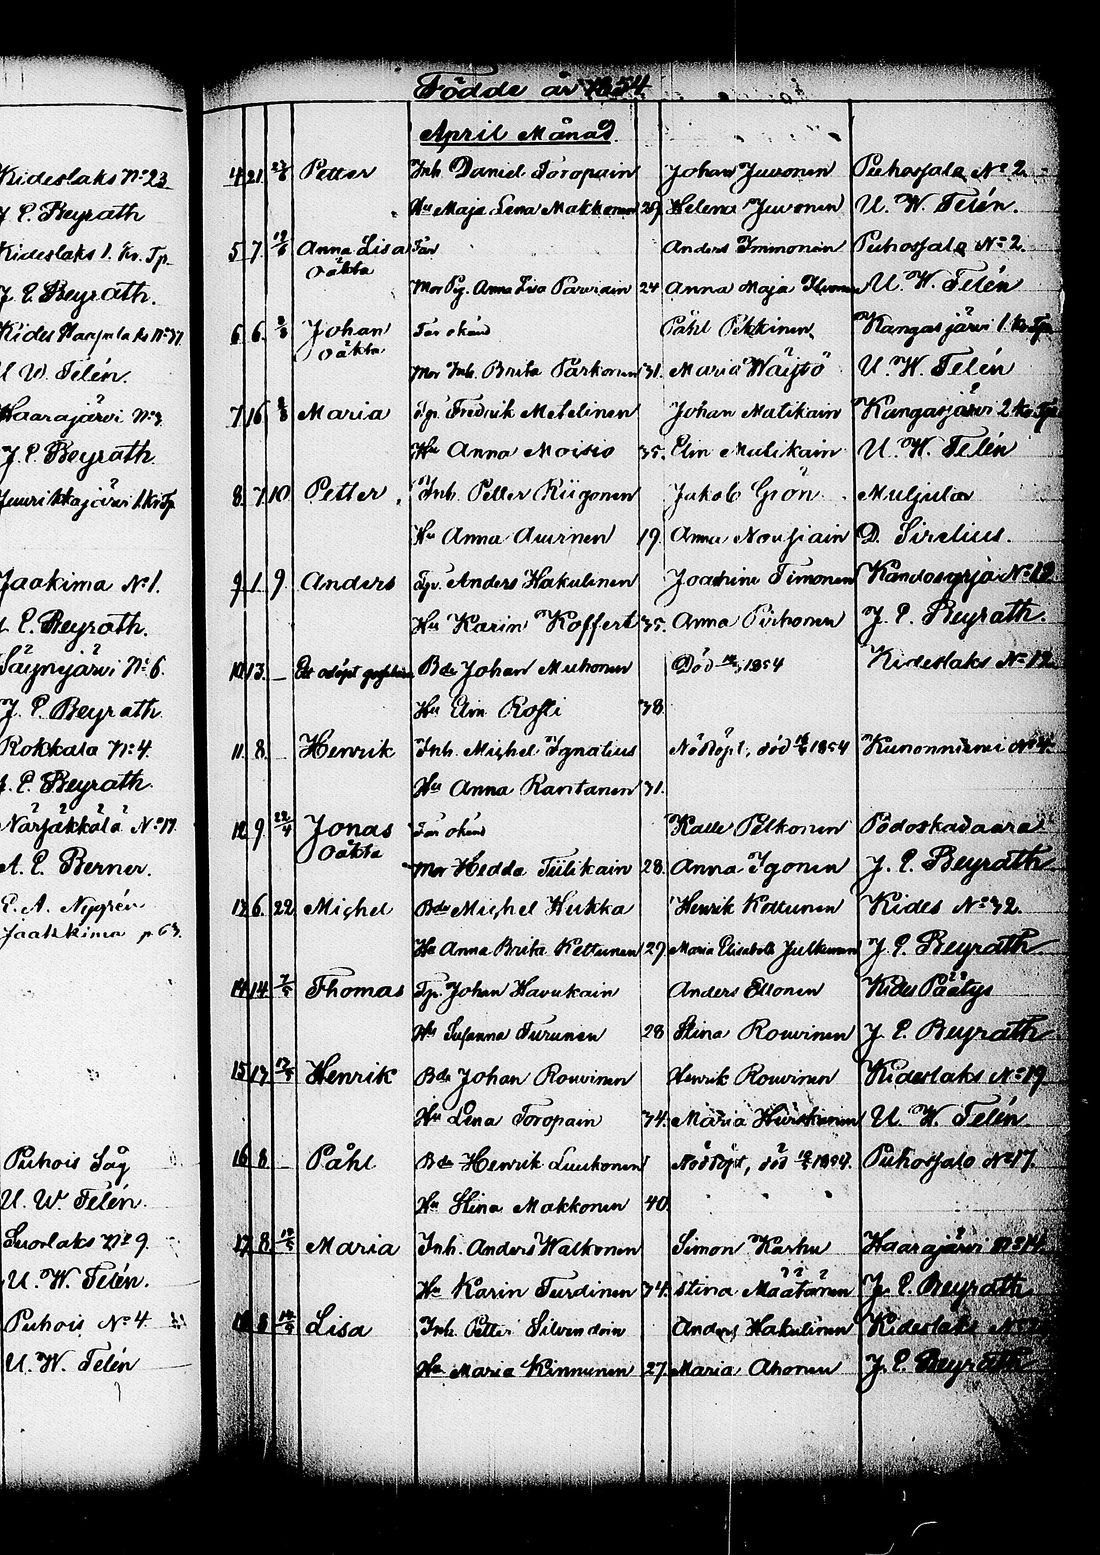 Kideslaks No 23
J. E. Beyrath
Kideslaks 1. Kr. Tp.
J. E. Beyrath.
U. W. Telén.
Haarajärvi No 3.
J. E. Beyrath
Jaakima No 1.
J. E. Beyrath.
Säynyjärvi No 6.
J. E. Beyrath.
Rokkala No 4.
J. E. Beyrath.
Närsäkkälä No 17
A. E. Berner.
Jaakkima p 63.
Puhois Såg
U. W. Telén.
Suorlaks No 9.
U. W. Telén.
Puhois No 4
U. W. Telén
Födde år 1854
April Månad
4 21 Petter Inh. Daniel Toropain Johan Juvonen Puhossalo No 2
Hu Maja Lena Makkonen 29 Helena Juvonen U. W. Telén.
5 7 Anna Lisa Far Anders Immonen Puhossalo No 2.
oäkta
Mor Pig. Anna Lisa Parviain 24 Anna Maja U. W. Telén
6 6 Johan Far okänd Påhl Pekkinen Kangasjärvi 1 Kr. Tp.
oäkta
Mor Inh. Brita Parkonen 31. Maria Wäistö U. W. Telén
7 16 Maria Tp. Fredrik Metelinen Johan Matikain Kangasjärvi 2 Kr. Tp.
Hu Anna Moisio 35. Elin Matikain U. W. Telén
8. 7 10 Petter Inh. Petter Riigonen Jakob Grön Muljula
Hu Anna Auvinen 19. Anna Nousiain D. Sirelius.
9 1. 9 Anders Tp. Anders Hakulinen Joachim Timonen
Hu Karin Koffert 35. Anna Pirhonen J. E. Beyrath.
10 13. — Ett odöpt gossebarn Bde Johan Muhonen Död 1854 Kideslaks No 12.
Hu Elin 38.
11. 8 Henrik Inh. Michel Ignatius Nöddöpt, död 1854 Kunonniemi No 4.
Hu Anna Rantanen 31.
12 9 22/4 Jonas Far okänd Kalle Pelkonen
oäkta
Mor Hedda Tiilikain 28. Anna Igonen J. E. Beyrath
13 6. 22 Michel Bde Michel Hukka Henrik Kottunen Kides No 32.
Hu Anna Brita Kettunen 29 Maria Elisabeth Julkunen J. E. Beyrath
14 14 Thomas Tp. Johan Havukain Anders Ellonen Kides Päätys
Hu Susanna Turunen 28 Stina Rouvinen J. E. Beyrath
15 17 Henrik Bde Johan Rouvinen Henrik Rouvinen Kideslaks No 19
Hu Lena Toropain 34. Maria Hirvkonen U. W. Telén.
16 8 — Påhl Bde Henrik Luukonen Nöddöpt, död 1854. Puhossalo No 17.
Hu Stina Makkonen 40.
17 8 Maria Inh. Anders Walkonen Simon Karhu Haarajärvi No 14.
Hu Karin Turdinen 34. Stina Määtänen J. E. Beyrath
18 8 Lisa Inh. Petter Silvendoin Anders Hakulinen Kideslaks No
Hu Maria Kinnunen 27. Maria Ahonen J. E. Beyrath